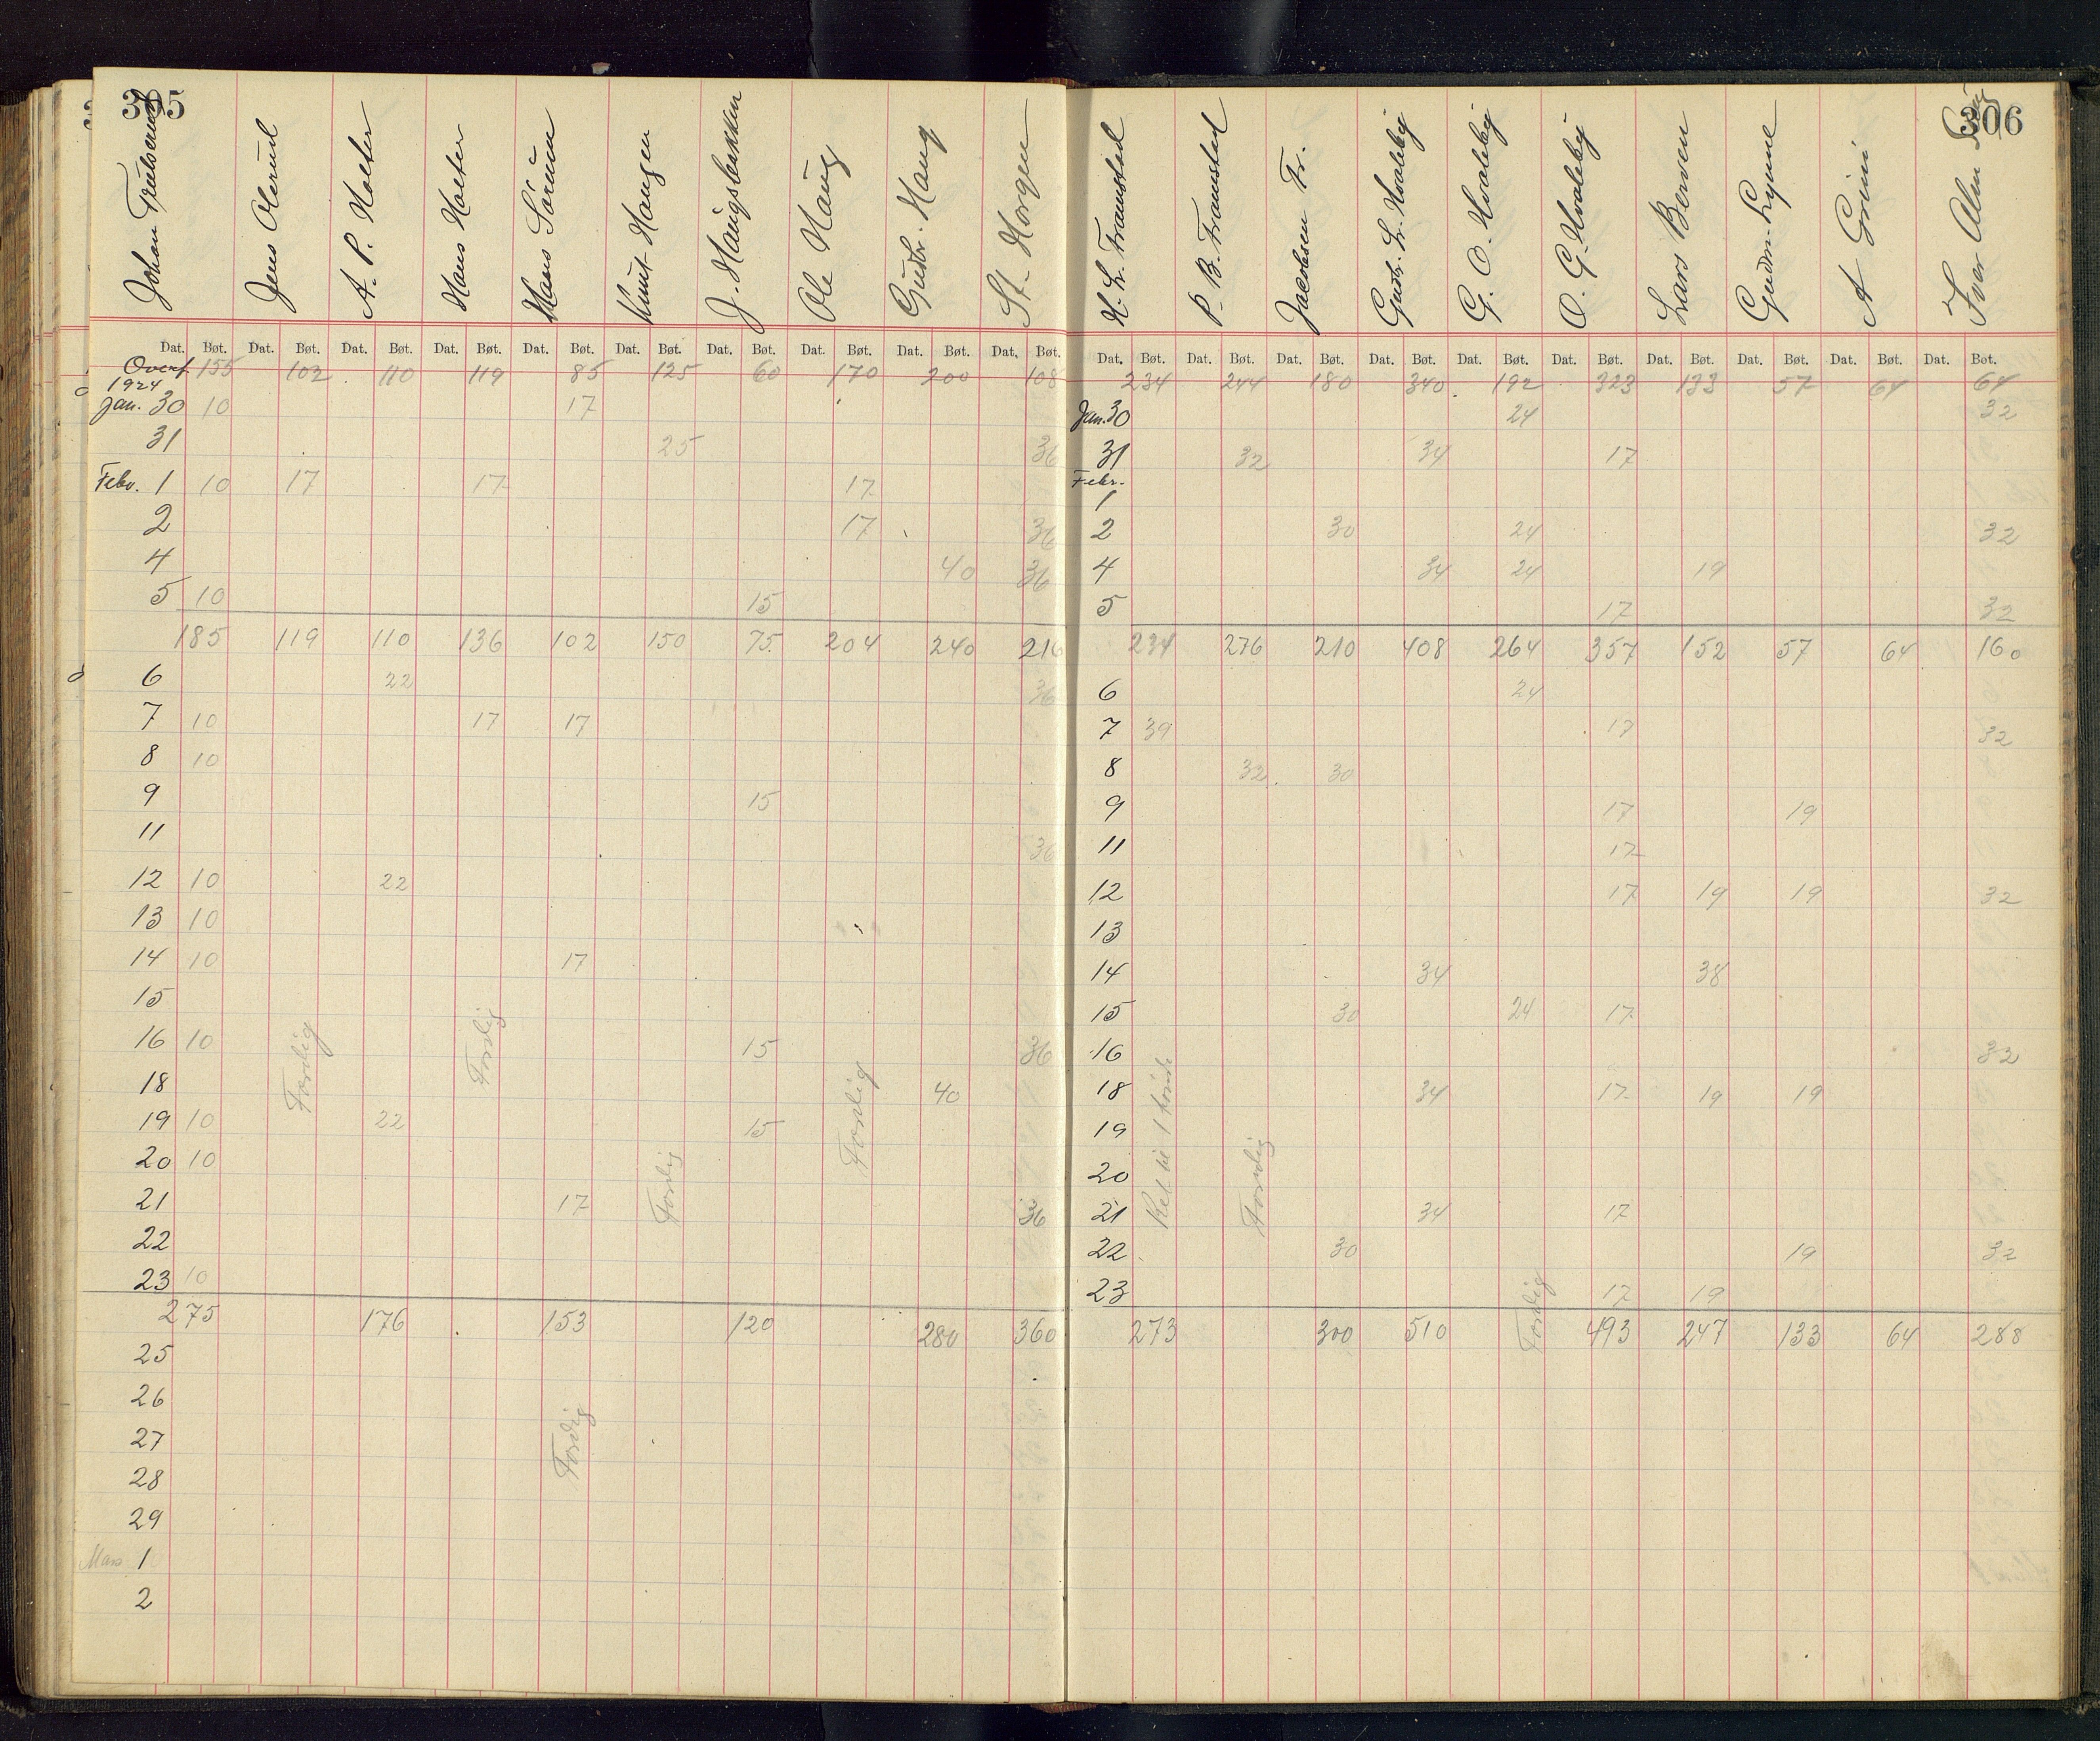 305
Johan Trulserud Jens Olerud A. P. Holter Hans Holter Hans Sørum Knut Haugen J. Haugsbakken Ole Haug Gudbr. Haug St. Horgen
Dat. Bøt. Dat. Bøt. Dat. Bøt. Dat. Bøt. Dat. Bøt. Dat. Bøt. Dat. Bøt. Dat. Bøt. Dat. Bøt. Dat. Bøt.
Overf 155 102 110 119 85 125 60 170 200 108
1924
Jan. 30 10 17
31 25 36
Febr. 1 10 17 17 17
2 17 36
4 40 36
5 10 15
185 119 110 136 102 150 75 204 240 216
6 22 36
7 10 17 17
8 10
9 15
11 36
12 10 22
13 10
14 10 17
15
16 10 15 36
18 40
19 10 22 15
20 10
21 17 36
22
23 10
Færdig Færdig Færdig Færdig
275 176 153 120 280 360
25
26
27
28
Færdig
29
Mars 1
2
306
H. L. Framstad P. B. Framstad Jacobsen Fr. Gudb. L. Hvaleby G. O. Hvaleby O. G. Hvaleby Lars Berven Gudm. Lynne A Grini Iver Alm
Dat. Bøt. Dat. Bøt. Dat. Bøt. Dat. Bøt. Dat. Bøt. Dat. Bøt. Dat. Bøt. Dat. Bøt. Dat. Bøt. Dat. Bøt.
234 244 180 340 192 323 133 57 64 64
Jan. 30 24 32
31 32 34 17
Febr.
1
2 30 24 32
4 34 24 19
5 17 32
234 276 210 408 264 357 152 57 64 160
6 24
7 39 17 32
8 32 30
9 17 19
11 17
12 17 19 19 32
13
14 34 38
15 30 24 17
16 32
18 34 17 19 19
19
20
21 34 17
22 30 19 32
23 17 19
Færdig Færdig
273 300 510 493 247 133 64 288